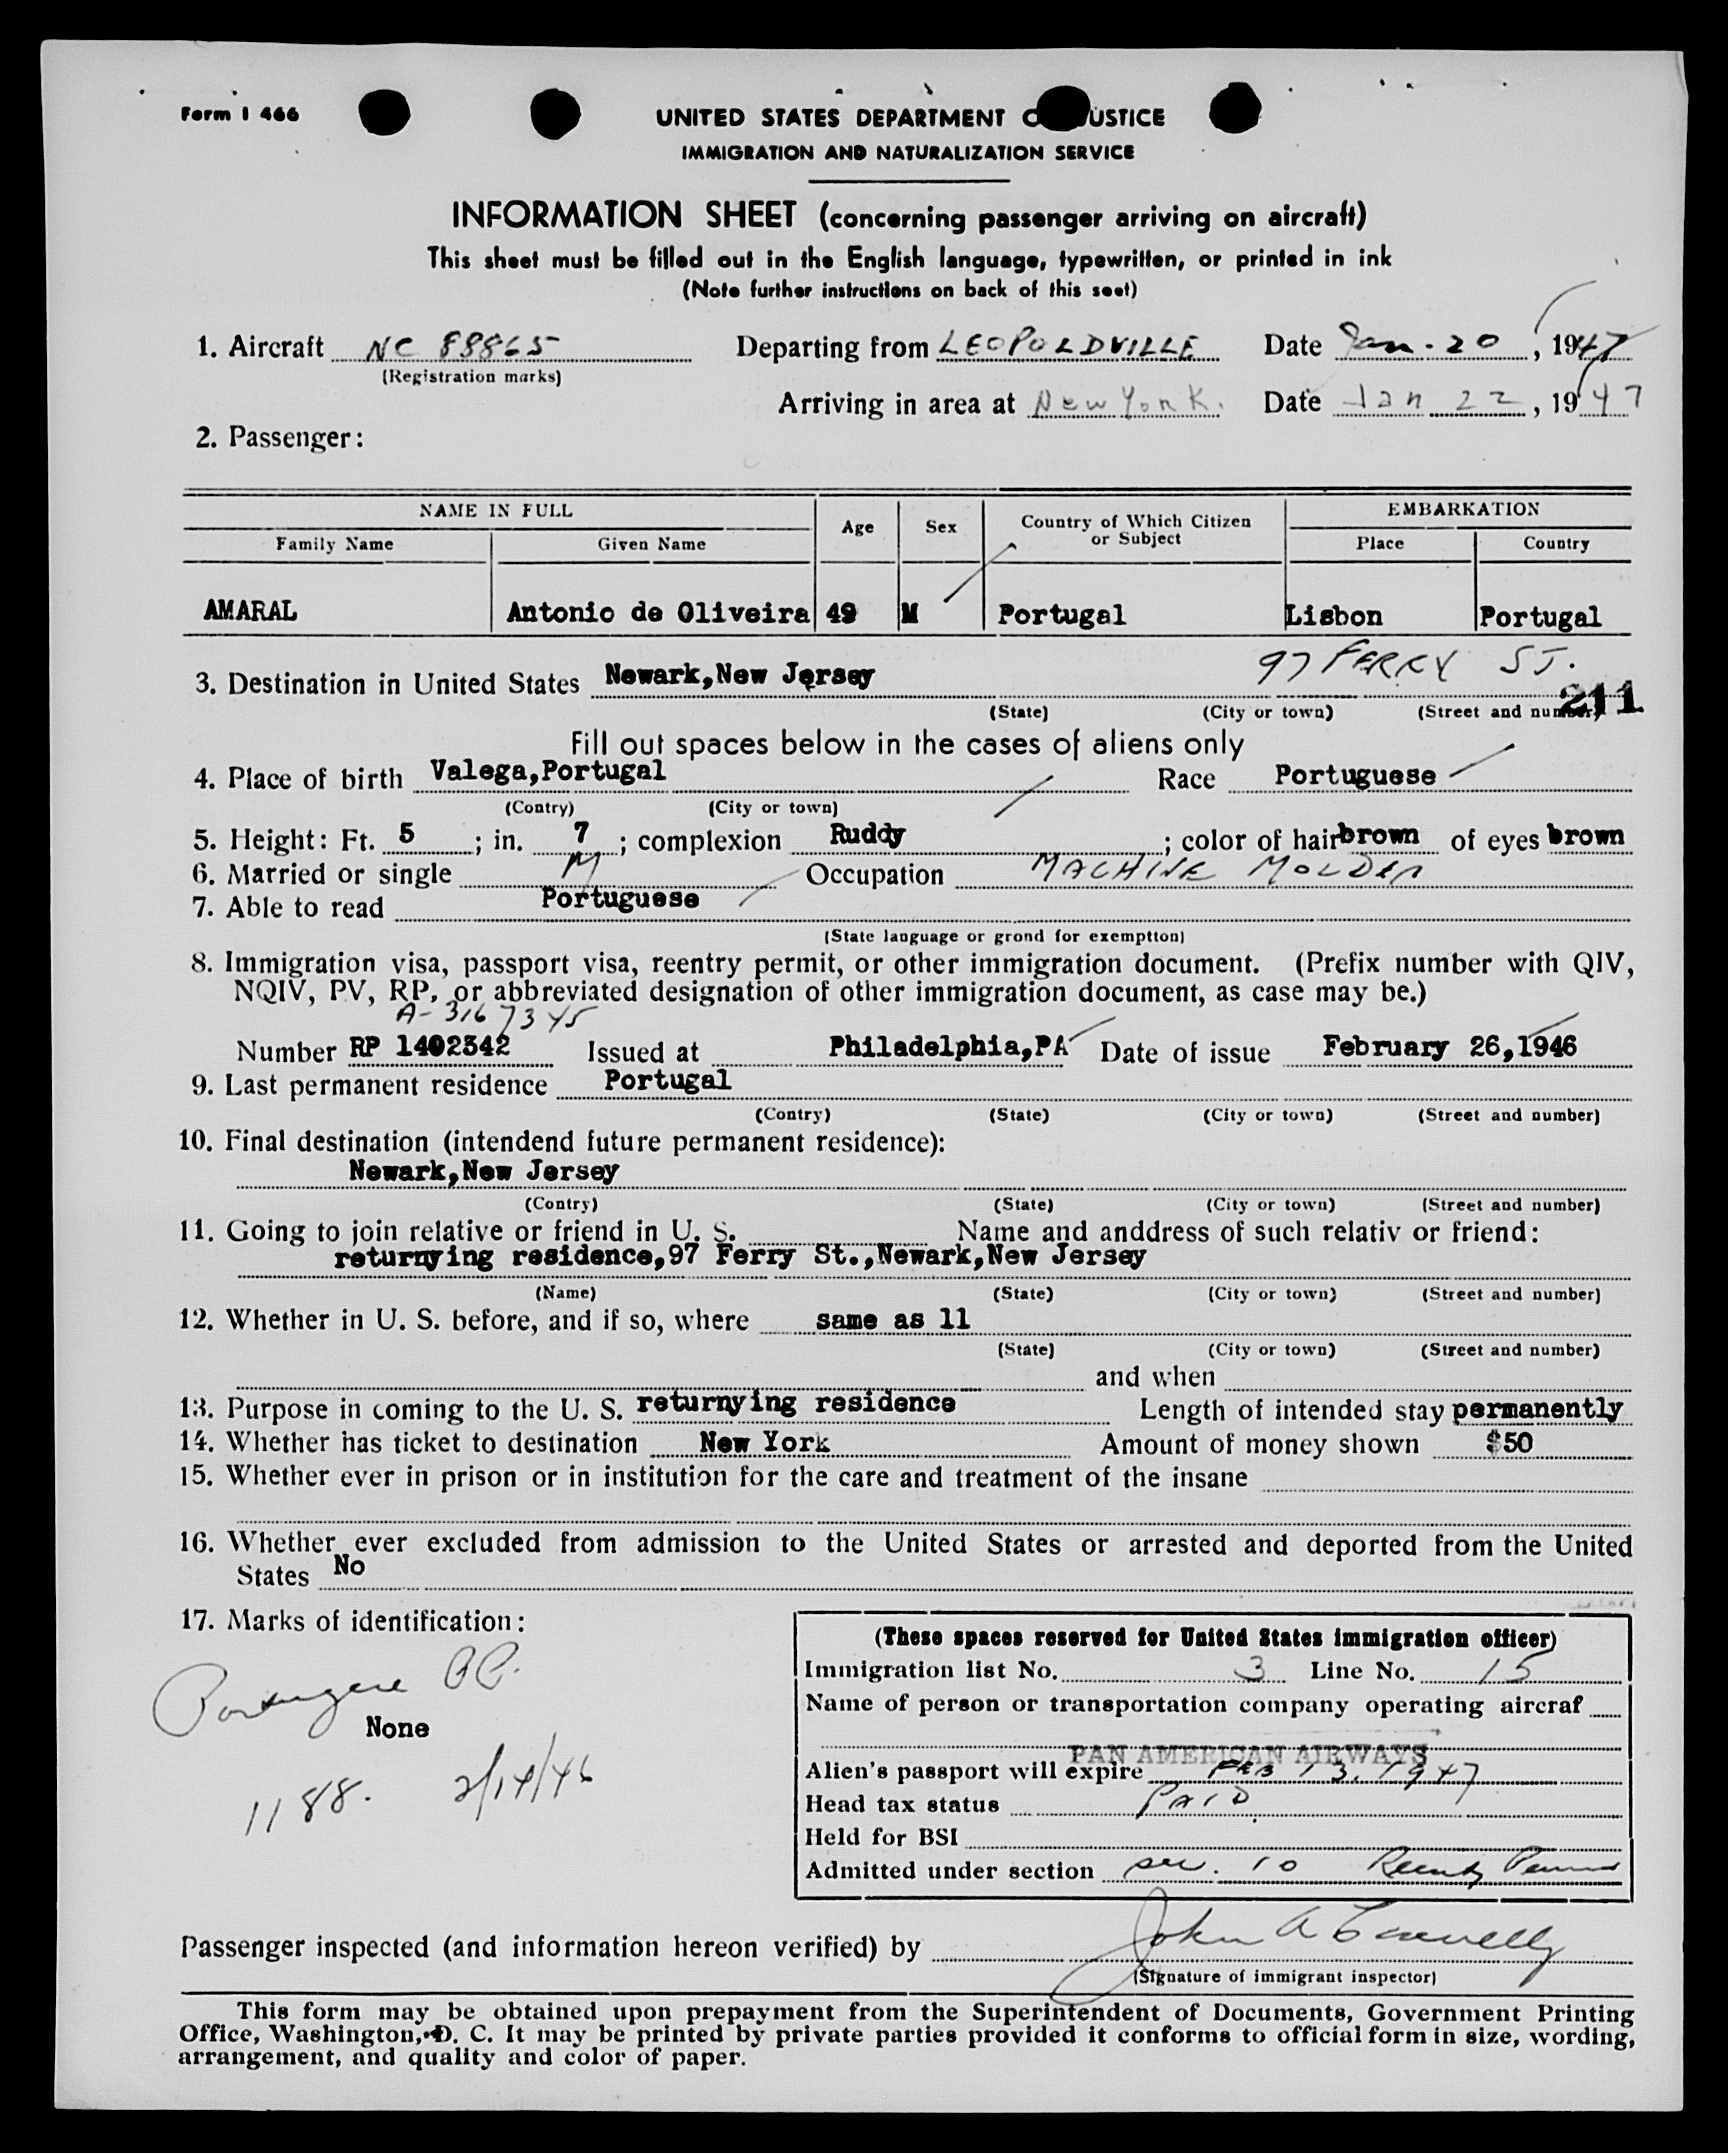 Form I 466
UNITED STATES DEPARTMENT O USTICE
IMMIGRATION AND NATURALIZATION SERVICE
INFORMATION SHEET (concerning passenger arriving on aircraft)
This sheet must be filled out in the English language, typewritten, or printed in ink
(Note further instructions on back of this seet)
1. Aircraft NC 88865 Departing from LEOPOLDVILLE Date Jan. 20, 1947
(Registration marks)
Arriving in area at New York. Date Jan 22, 1947
2. Passenger:
NAME IN FULL Age Sex Country of Which Citizen or Subject EMBARKATION
Family Name Given Name Place Country
AMARAL Antonio de Oliveira 49 M Portugal Lisbon Portugal
3. Destination in United States Newark,New Jersey 97 FERRY ST.
(State) (City or town) (Street and number)
211
Fill out spaces below in the cases of aliens only
4. Place of birth Valega,Portugal Race Portuguese
(Contry) (City or town)
5. Height: Ft. 5 ; in. 7 ; complexion Ruddy ; color of hair brown of eyes brown
6. Married or single M Occupation MACHINE MOLDER
7. Able to read Portuguese
(State language or grond for exemptton)
8. Immigration visa, passport visa, reentry permit, or other immigration document. (Prefix number with QIV,
NQIV, PV, RP, or abbreviated designation of other immigration document, as case may be.)
A-3167345
Number RP 1402342 Issued at Philadelphia,PA Date of issue February 26,1946
9. Last permanent residence Portugal
(Contry) (State) (City or town) (Street and number)
10. Final destination (intendend future permanent residence):
Newark,New Jersey
(Contry) (State) (City or town) (Street and number)
11. Going to join relative or friend in U. S. Name and anddress of such relativ or friend:
returnying residence,97 Ferry St.,Newark,New Jersey
(Name) (State) (City or town) (Street and number)
12. Whether in U. S. before, and if so, where same as 11
(State) (City or town) (Street and number)
and when
13. Purpose in coming to the U. S. returnying residence Length of intended stay permanently
14. Whether has ticket to destination New York Amount of money shown $50
15. Whether ever in prison or in institution for the care and treatment of the insane
16. Whether ever excluded from admission to the United States or arrested and deported from the United
States No
17. Marks of identification:
Portuguese PP.
None
1188. 2/14/46
(These spaces reserved for United States immigration officer)
Immigration list No. 3 Line No. 15
Name of person or transportation company operating aircraf
PAN AMERICAN AIRWAYS
Alien's passport will expire FEB 13, 1947
Head tax status PAID
Held for BSI
Admitted under section sec. 10 Reentry Permit
Passenger inspected (and information hereon verified) by John A
(Signature of immigrant inspector)
This form may be obtained upon prepayment from the Superintendent of Documents, Government Printing
Office, Washington, D. C. It may be printed by private parties provided it conforms to official form in size, wording,
arrangement, and quality and color of paper.